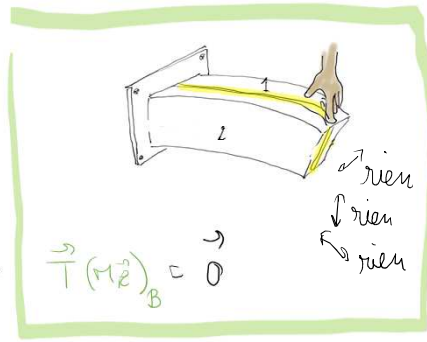 1
2
rien
rien
rien
T⃗(M, 2⃗)_B = 0⃗